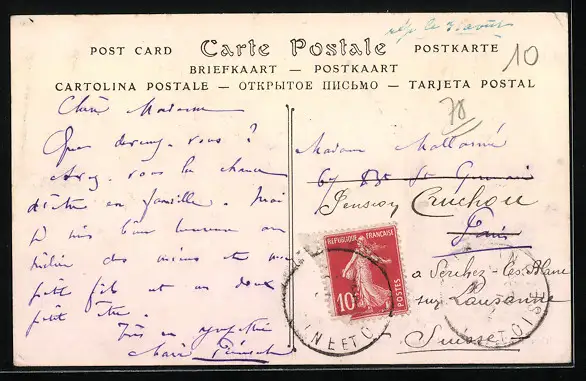 rép le 31 août
POST CARD Carte Postale POSTKARTE
BRIEFKAART — POSTKAART
CARTOLINA POSTALE — ОТКРЫТОЕ ПИСЬМО — TARJETA POSTAL
10
70
Chère Madame
Que devenez-vous ?
Avez-vous la chance
d'être en famille. Moi
je suis bien heureuse au
milieu des miens
petit fils et un doux
petit être.
Très en sympathie
Marie
Madame Mallarmé
67 Bd St Germain
Pension Cruchon
Paris
a Servhez-les-Alane
sur Lausanne
Suisse
REPUBLIQUE FRANÇAISE
10
POSTES
INE ET O
ET OISE